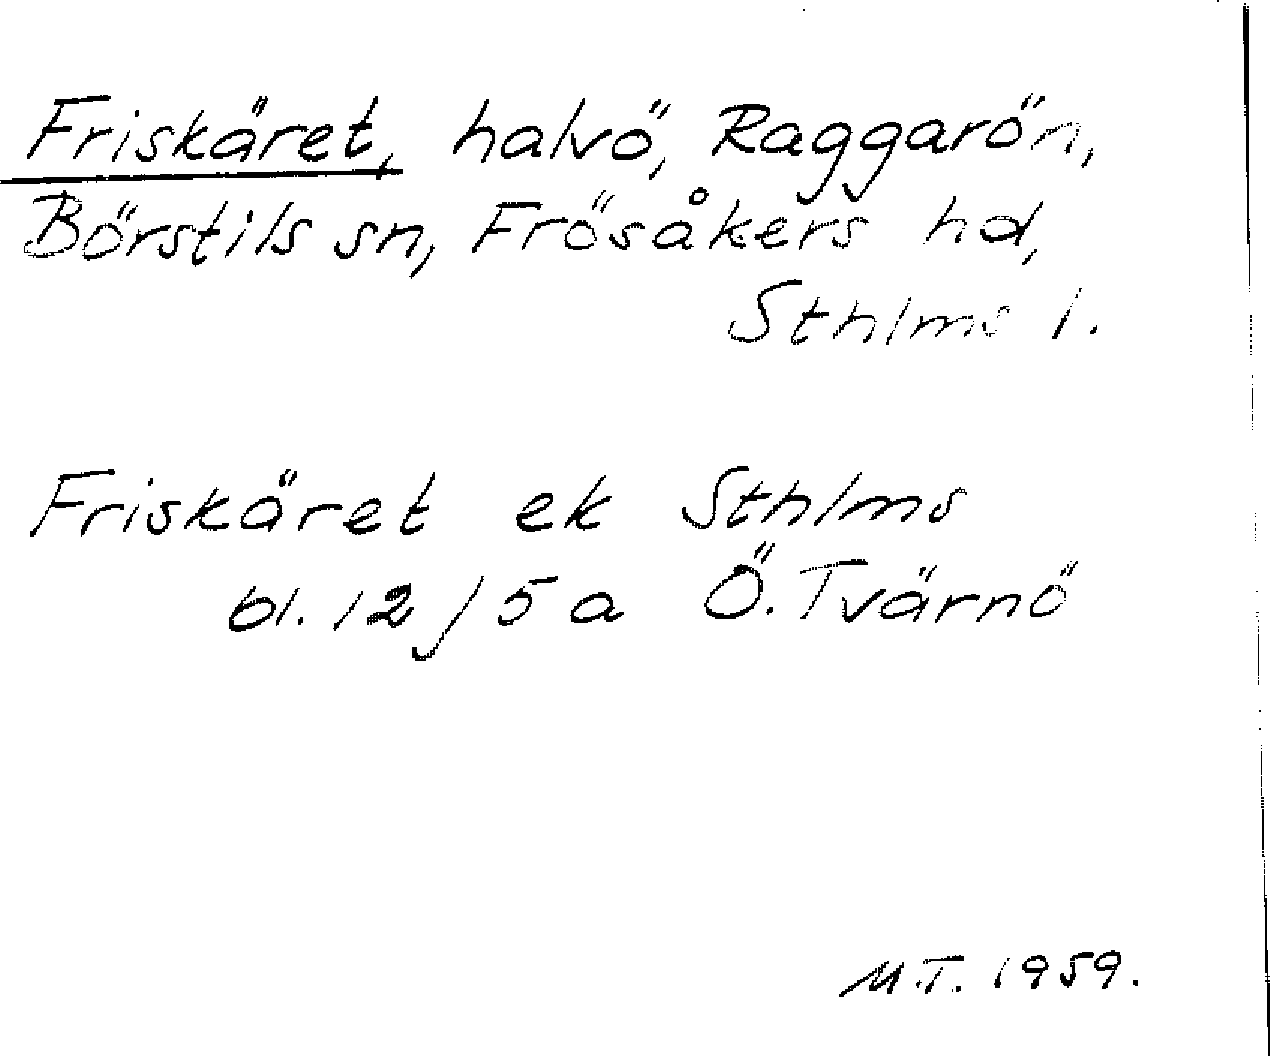 Friskäret, halvö, Raggarön,
Börstils sn, Frösåkers hd,
Sthlms l.
Friskäret ek Sthlms
bl. 12/5a Ö. Tvärnö
M.T. 1959.